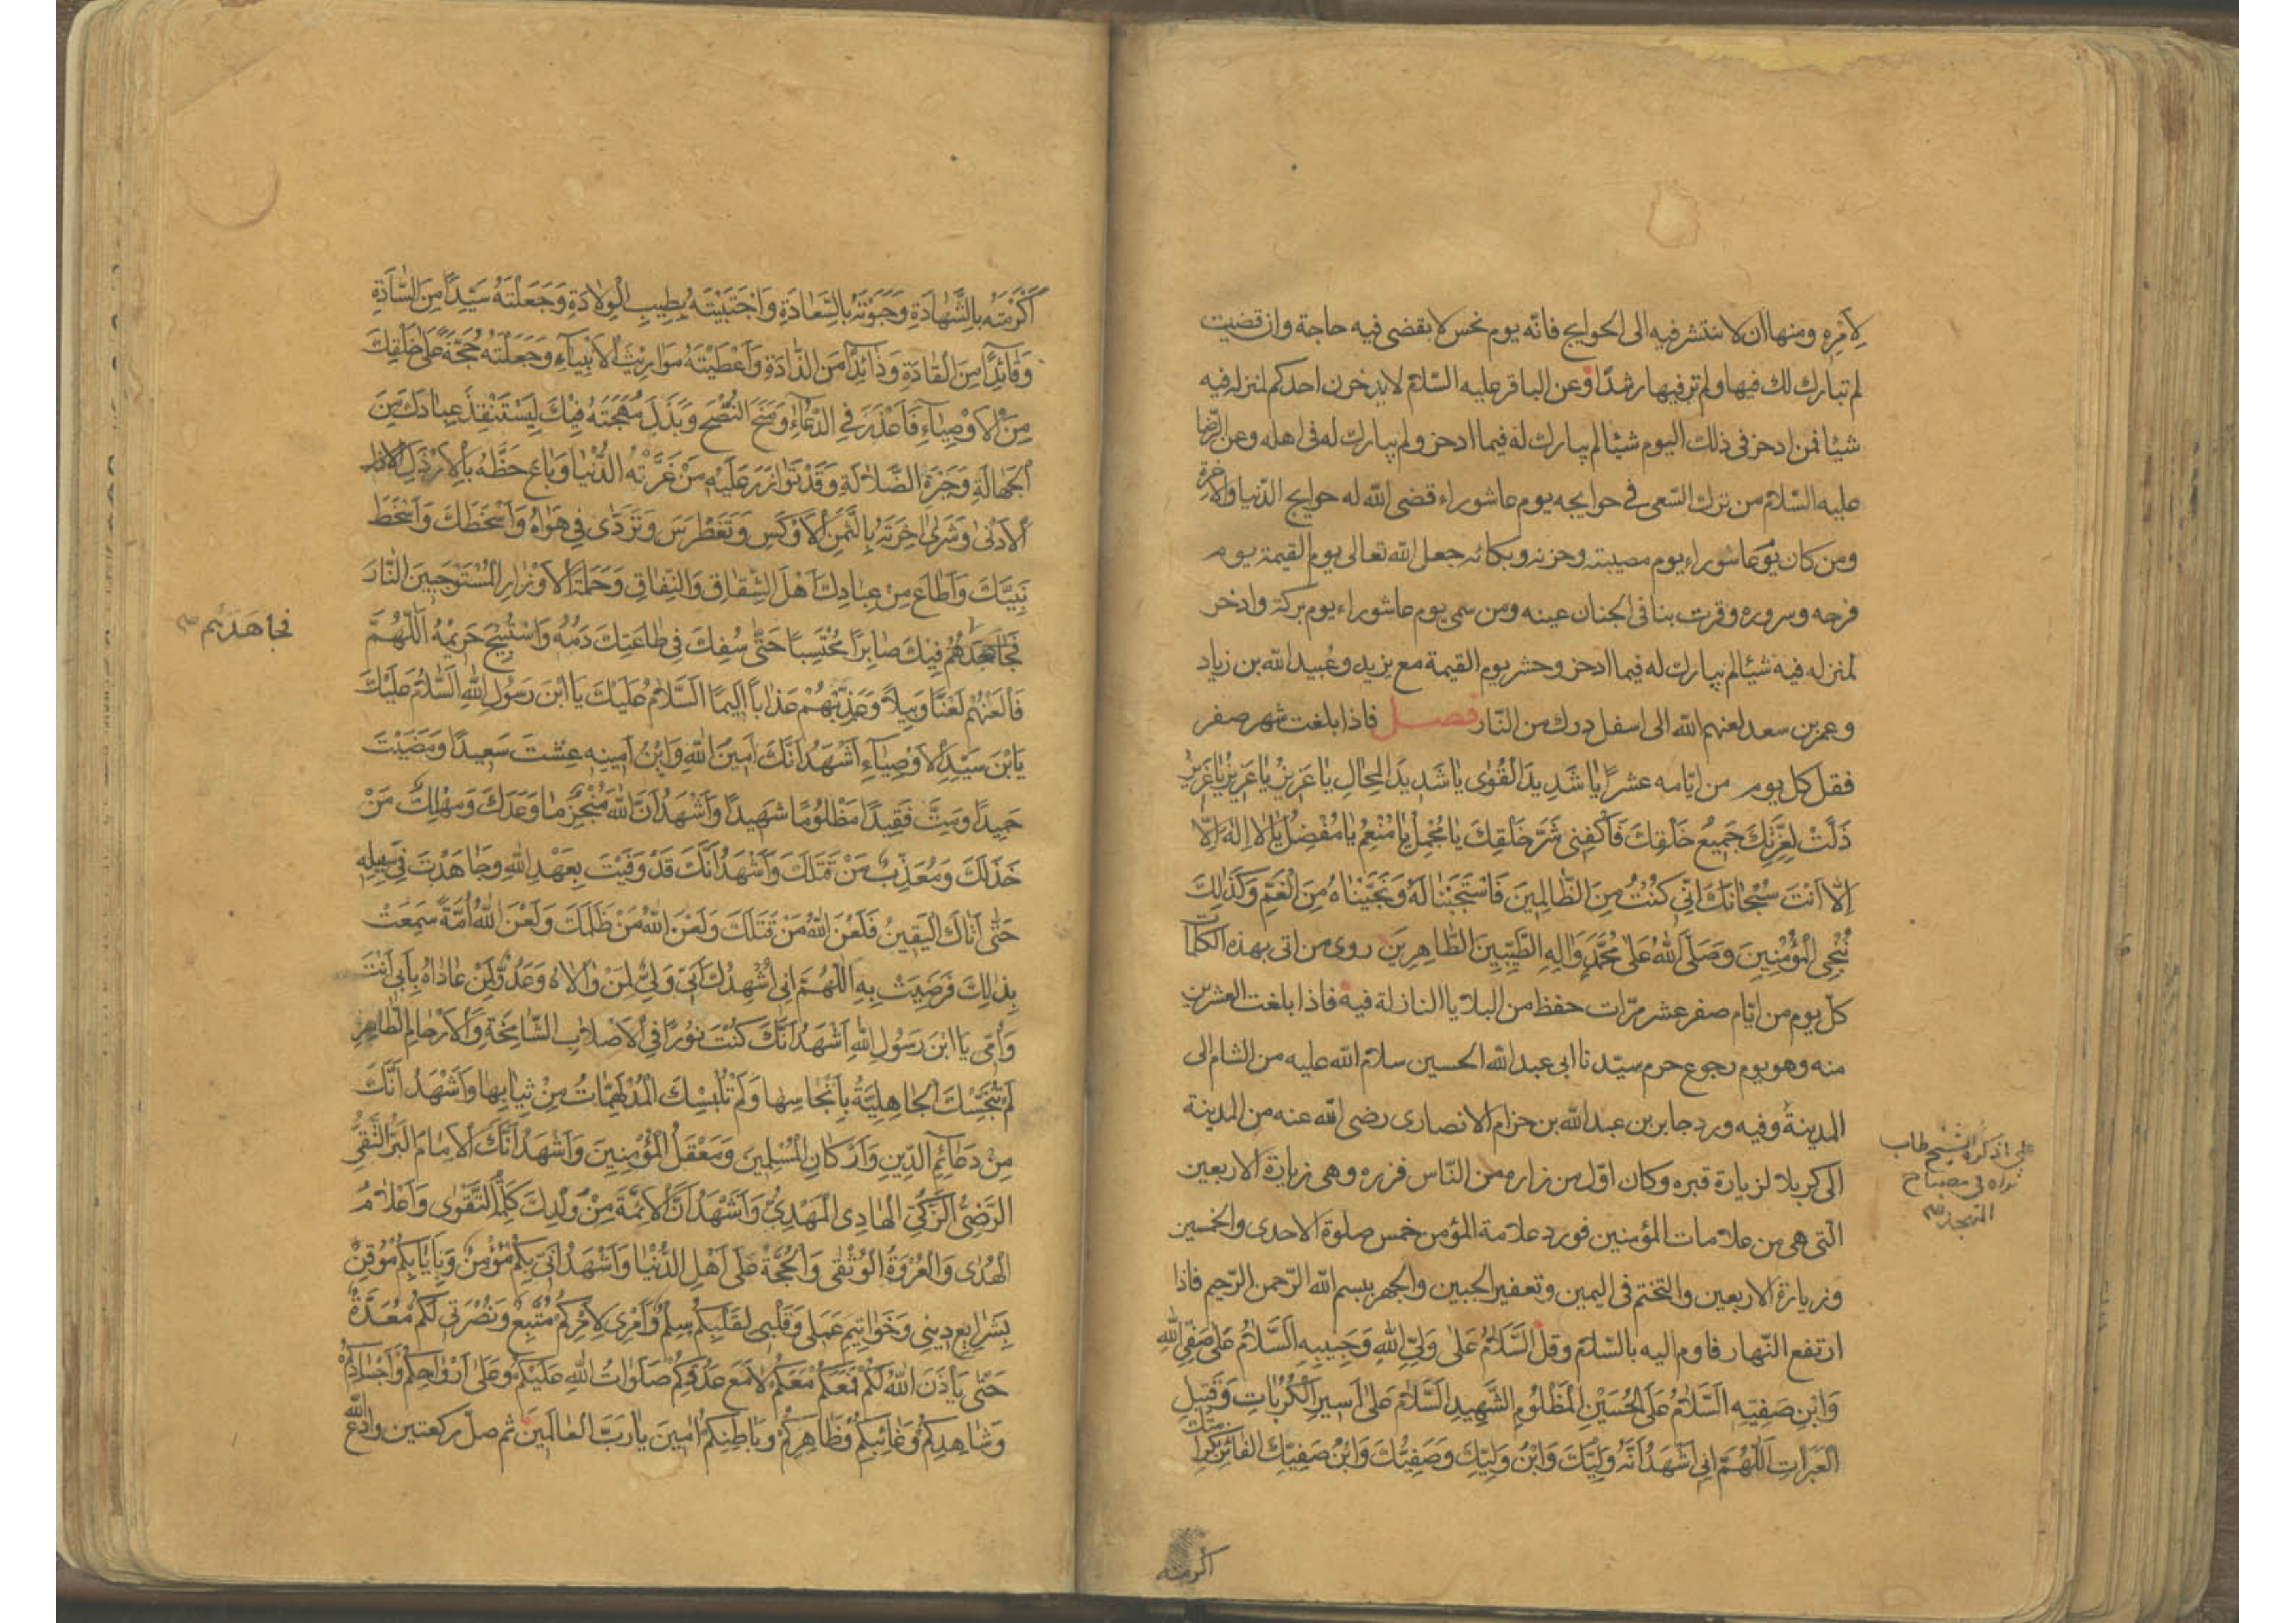 لِاَمْرِهِ ومنها ان لا ننتشر فيه الى الحوايج فانّه يوم نحس لا يقضى فيه حاجة وان قضيت
لم تبارك لك فيها ولم تر فيها رشدًا وعن الباقر عليه السّلام لا يدخرن احدكم لمنزله فيه
شيئا فمن ادخر فى ذلك اليوم شيئا لم يبارك له فيما ادخر ولم يبارك له فى اهله وعن الرّضا
عليه السّلام من ترك السّعى فى حوايجه يوم عاشوراء قضى الله له حوايج الدّنيا والآخرة
ومن كان يوم عاشوراء يوم مصيبته وحزنه وبكائه جعل الله تعالى يوم القيمة يوم
فرحه وسروره وقرت بنا فى الجنان عينه ومن سمى يوم عاشوراء يوم بركة وادخر
لمنزله فيه شيئا لم يبارك له فيما ادخر وحشر يوم القيمة مع يزيد وعُبيد الله بن زياد
وعمر بن سعد لعنهم الله الى اسفل درك من النّار فصل فاذا بلغت شهر صفر
فقل كل يوم من ايّامه عشرًا يَا شَدِيدَ الْقُوٰى يَا شَدِيدَ الْمِحَالِ يَا عَزِيزُ يَا عَزِيزُ يَا عَزِيزُ
ذَلَّتْ لِعِزَّتِكَ جَمِيعُ خَلْقِكَ فَاكْفِنِى شَرَّ خَلْقِكَ يَا مُجْمِلُ يَا مُنْعِمُ يَا مُفْضِلُ يَا لَا اِلٰهَ اِلَّا
اِلَّا اَنْتَ سُبْحَانَكَ اِنِّى كُنْتُ مِنَ الظَّالِمِينَ فَاسْتَجَبْنَا لَهُ وَنَجَّيْنَاهُ مِنَ الْغَمِّ وَكَذٰلِكَ
نُنْجِى الْمُؤْمِنِينَ وَصَلَّى اللهُ عَلٰى مُحَمَّدٍ وَاٰلِهِ الطَّيِّبِينَ الطَّاهِرِينَ روى من اتى بهذه الكلمات
كلّ يوم من ايّام صفر عشر مرّات حفظ من البلايا النازلة فيه فاذا بلغت العشرين
منه وهو يوم رجوع حرم سيّدنا ابى عبد الله الحسين سلام الله عليه من الشام الى
المدينة وفيه ورد جابر بن عبد الله بن حزام الانصارى رضى الله عنه من المدينة
الى كربلا لزيارة قبره وكان اوّل من زاره من النّاس فزره وهى زيارة الاربعين
الّتى هى من علامات المؤمنين فورد علامة المؤمن خمس صلوة الاحدى والخمسين
وزيارة الاربعين والتختم فى اليمين وتعفير الجبين والجهر ببسم الله الرّحمن الرّحيم فاذا
ارتفع النّهار فاوم اليه بالسّلام وقل اَلسَّلَامُ عَلٰى وَلِىِّ اللهِ وَحَبِيبِهِ اَلسَّلَامُ عَلٰى صَفِىِّ اللهِ
وَابْنِ صَفِيِّهِ اَلسَّلَامُ عَلَى الْحُسَيْنِ الْمَظْلُومِ الشَّهِيدِ اَلسَّلَامُ عَلٰى اَسِيرِ الْكُرُبَاتِ وَقَتِيلِ
الْعَبَرَاتِ اَللّٰهُمَّ اِنِّى اَشْهَدُ اَنَّهُ وَلِيُّكَ وَابْنُ وَلِيِّكَ وَصَفِيُّكَ وَابْنُ صَفِيِّكَ الْفَائِزُ بِكَرَامَتِكَ
ذكره الشيخ طاب
ثراه فى مصباح
المتهجد
اكرمته
اَكْرَمْتَهُ بِالشَّهَادَةِ وَحَبَوْتَهُ بِالسَّعَادَةِ وَاجْتَبَيْتَهُ بِطِيبِ الْوِلَادَةِ وَجَعَلْتَهُ سَيِّدًا مِنَ السَّادَةِ
وَقَائِدًا مِنَ الْقَادَةِ وَذَائِدًا مِنَ الذَّادَةِ وَاَعْطَيْتَهُ مَوَارِيثَ الْاَنْبِيَاءِ وَجَعَلْتَهُ حُجَّةً عَلٰى خَلْقِكَ
مِنَ الْاَوْصِيَاءِ فَاَعْذَرَ فِى الدُّعَاءِ وَمَنَحَ النُّصْحَ وَبَذَلَ مُهْجَتَهُ فِيكَ لِيَسْتَنْقِذَ عِبَادَكَ مِنَ
الْجَهَالَةِ وَحَيْرَةِ الضَّلَالَةِ وَقَدْ تَوَازَرَ عَلَيْهِ مَنْ غَرَّتْهُ الدُّنْيَا وَبَاعَ حَظَّهُ بِالْاَرْذَلِ
الْاَدْنٰى وَشَرٰى اٰخِرَتَهُ بِالثَّمَنِ الْاَوْكَسِ وَتَغَطْرَسَ وَتَرَدّٰى فِى هَوَاهُ وَاَسْخَطَكَ وَاَسْخَطَ
نَبِيَّكَ وَاَطَاعَ مِنْ عِبَادِكَ اَهْلَ الشِّقَاقِ وَالنِّفَاقِ وَحَمَلَةَ الْاَوْزَارِ الْمُسْتَوْجِبِينَ النَّارَ
فَجَاهَدَهُمْ فِيكَ صَابِرًا مُحْتَسِبًا حَتّٰى سُفِكَ فِى طَاعَتِكَ دَمُهُ وَاسْتُبِيحَ حَرِيمُهُ اَللّٰهُمَّ
فَالْعَنْهُمْ لَعْنًا وَبِيلًا وَعَذِّبْهُمْ عَذَابًا اَلِيمًا اَلسَّلَامُ عَلَيْكَ يَا ابْنَ رَسُولِ اللهِ اَلسَّلَامُ عَلَيْكَ
يَابْنَ سَيِّدِ الْاَوْصِيَاءِ اَشْهَدُ اَنَّكَ اَمِينُ اللهِ وَابْنُ اَمِينِهِ عِشْتَ سَعِيدًا وَمَضَيْتَ
حَمِيدًا وَمِتَّ فَقِيدًا مَظْلُومًا شَهِيدًا وَاَشْهَدُ اَنَّ اللهَ مُنْجِزٌ مَا وَعَدَكَ وَمُهْلِكٌ مَنْ
خَذَلَكَ وَمُعَذِّبٌ مَنْ قَتَلَكَ وَاَشْهَدُ اَنَّكَ قَدْ وَفَيْتَ بِعَهْدِ اللهِ وَجَاهَدْتَ فِى سَبِيلِهِ
حَتّٰى اَتَاكَ الْيَقِينُ فَلَعَنَ اللهُ مَنْ قَتَلَكَ وَلَعَنَ اللهُ مَنْ ظَلَمَكَ وَلَعَنَ اللهُ اُمَّةً سَمِعَتْ
بِذٰلِكَ فَرَضِيَتْ بِهِ اَللّٰهُمَّ اِنِّى اُشْهِدُكَ اَنِّى وَلِىٌّ لِمَنْ وَالَاهُ وَعَدُوٌّ لِمَنْ عَادَاهُ بِاَبِى اَنْتَ
وَاُمِّى يَا ابْنَ رَسُولِ اللهِ اَشْهَدُ اَنَّكَ كُنْتَ نُورًا فِى الْاَصْلَابِ الشَّامِخَةِ وَالْاَرْحَامِ الطَّاهِرِ
لَمْ تُنَجِّسْكَ الْجَاهِلِيَّةُ بِاَنْجَاسِهَا وَلَمْ تُلْبِسْكَ الْمُدْلَهِمَّاتُ مِنْ ثِيَابِهَا وَاَشْهَدُ اَنَّكَ
مِنْ دَعَائِمِ الدِّينِ وَاَرْكَانِ الْمُسْلِمِينَ وَمَعْقِلِ الْمُؤْمِنِينَ وَاَشْهَدُ اَنَّكَ الْاِمَامُ الْبَرُّ التَّقِىُّ
الرَّضِىُّ الزَّكِىُّ الْهَادِى الْمَهْدِىُّ وَاَشْهَدُ اَنَّ الْاَئِمَّةَ مِنْ وُلْدِكَ كَلِمَةُ التَّقْوٰى وَاَعْلَامُ
الْهُدٰى وَالْعُرْوَةُ الْوُثْقٰى وَالْحُجَّةُ عَلٰى اَهْلِ الدُّنْيَا وَاَشْهَدُ اَنِّى بِكُمْ مُؤْمِنٌ وَبِاِيَابِكُمْ مُوقِنٌ
بِشَرَايِعِ دِينِى وَخَوَاتِيمِ عَمَلِى وَقَلْبِى لِقَلْبِكُمْ سِلْمٌ وَاَمْرِى لِاَمْرِكُمْ مُتَّبِعٌ وَنُصْرَتِى لَكُمْ مُعَدَّةٌ
حَتّٰى يَاْذَنَ اللهُ لَكُمْ فَمَعَكُمْ مَعَكُمْ لَا مَعَ عَدُوِّكُمْ صَلَوَاتُ اللهِ عَلَيْكُمْ وَعَلٰى اَرْوَاحِكُمْ وَاَجْسَادِكُمْ
وَشَاهِدِكُمْ وَغَائِبِكُمْ وَظَاهِرِكُمْ وَبَاطِنِكُمْ اٰمِينَ يَا رَبَّ الْعَالَمِينَ ثم صلّ ركعتين وادع الله
فجاهدتهم